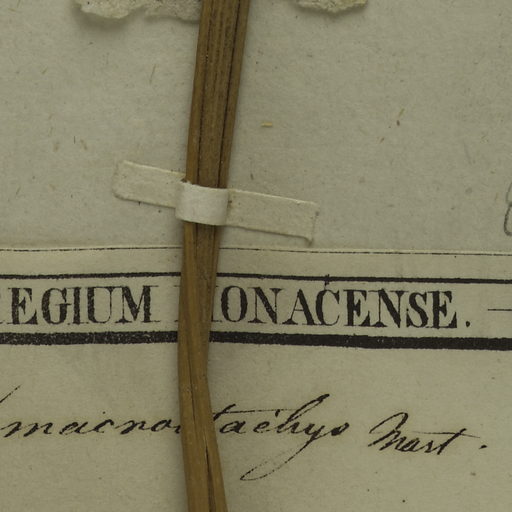 REGIUM MONACENSE.
macrostachys Mart.